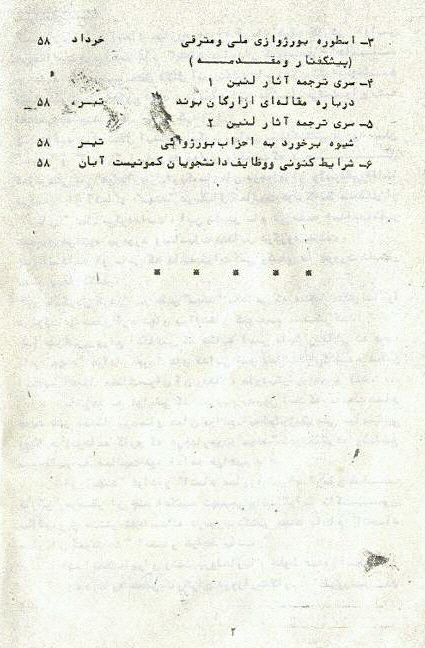 ۳ـ اسطوره بورژوازی ملی و مترقی خرداد ۵۸
(پیشگفتار و مقدمه)
۴ـ سری ترجمه آثار لنین ۱
درباره مقاله‌ای از ارگان بوند تیر ۵۸
۵ـ سری ترجمه آثار لنین ۲
شیوه برخورد به احزاب بورژوائی تیر ۵۸
۶ـ شرایط کنونی و وظایف دانشجویان کمونیست آبان ۵۸
* * * * *
۲